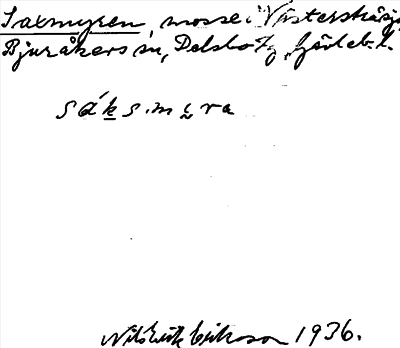 Saxmyren, mosse i Västerstråsjö
Bjuråkers sn, Delsbo tg, Gävleb. l.
sáksmyra
Nils Erik Eriksson 1936.